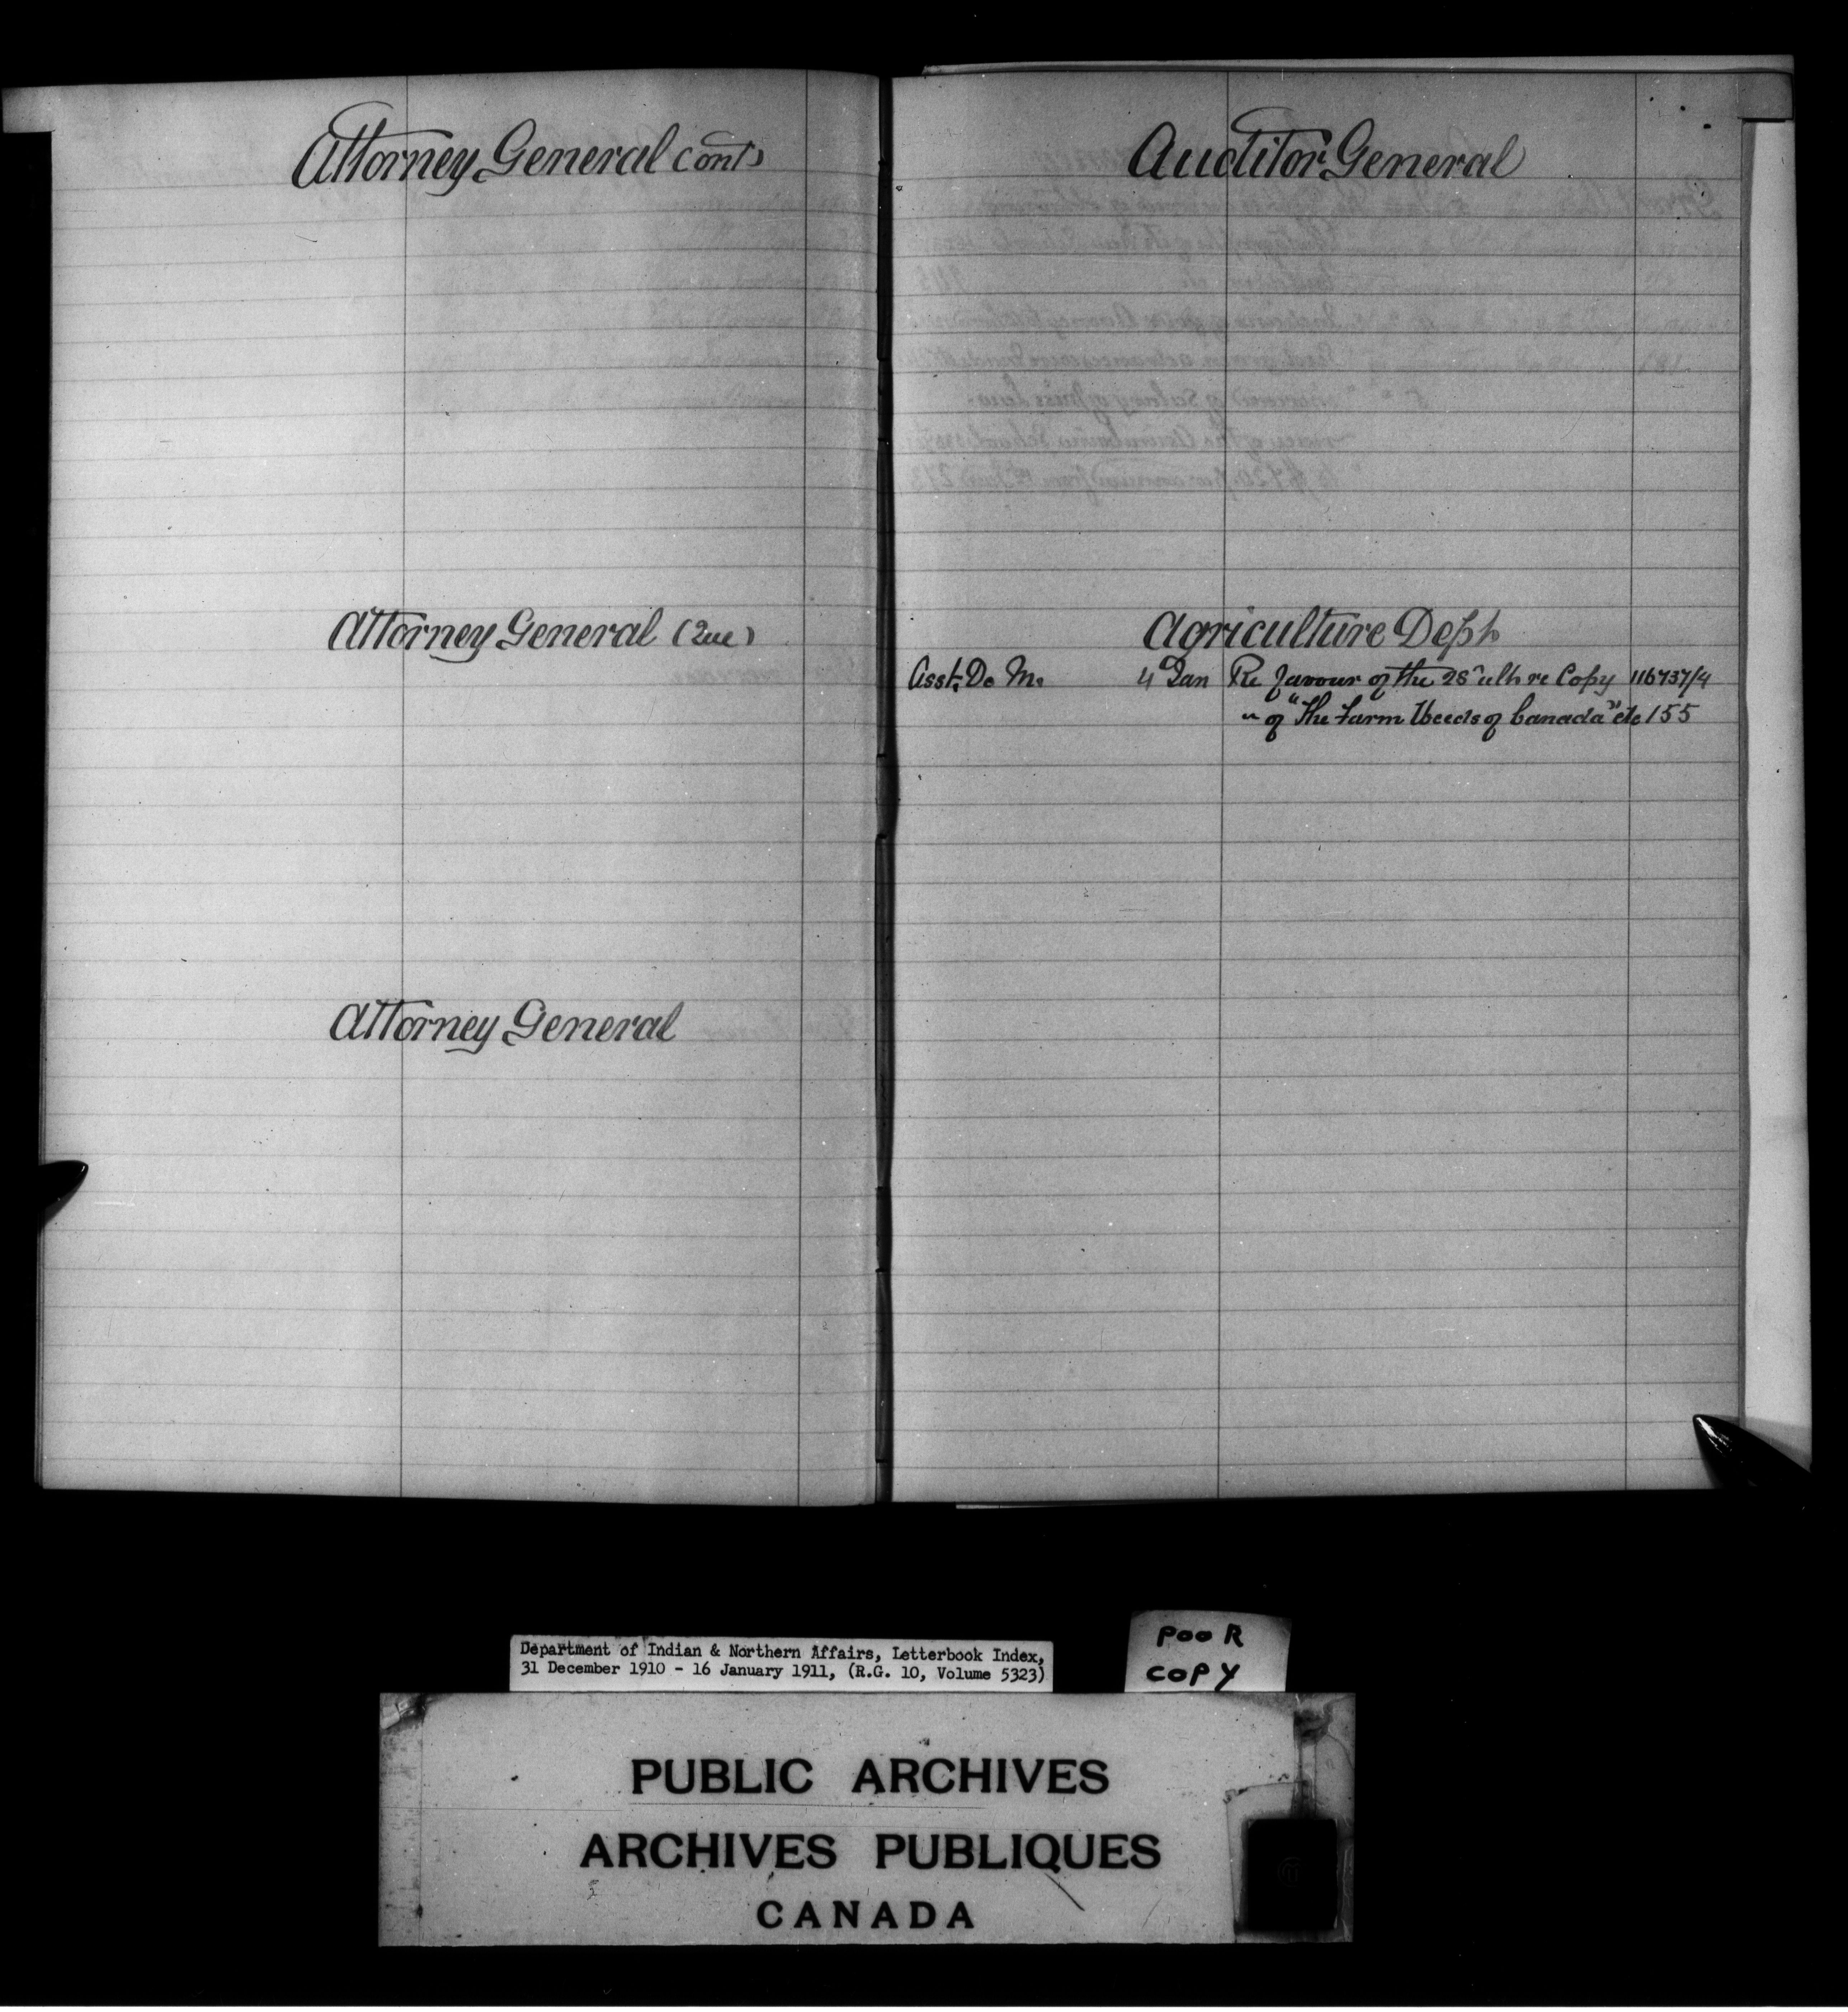 Attorney General (Ont)
Attorney General (Que)
Attorney General
Auditor General
Agriculture Dept.
Asst. D. M. 4 Jan Re favour of the 28" ulto re Copy 116737/4
" of "The Farm Weeds of Canada" etc 155
Department of Indian & Northern Affairs, Letterbook Index,
31 December 1910 - 16 January 1911, (R.G. 10, Volume 5323)
POOR
COPY
PUBLIC ARCHIVES
ARCHIVES PUBLIQUES
CANADA